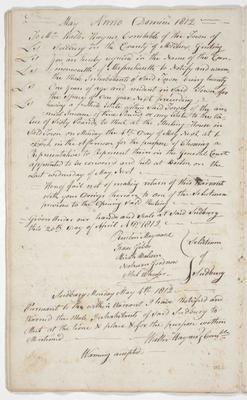 May Anno Domini 1812
To Mr Walter Haynes Constable of the Town of
Sudbury in the County of Middlesex Greeting
You are hereby required in the Name of the Com-
monwealth of Massachusetts to Notify and warn
the Male Inhabitants of Said Town being twenty
One years of age and resident in Said Town for
the Space of One year Next preceeding
having a freehold estate within Said Town of the an-
nual Income of three pounds or any estate to the Va-
lue of Sixty pounds to meet at the Meeting House in
Said Town on Monday the 4th Day of May Next at
oClock in the Afternoon for the purpose of Choosing a
Representative to Represent them in the General Court
appointed to be convened and held at Boston on the
last wednesday of May Next
Hereof fail not of making return of this Warrant
with your Doings thereon to one of the Selectmen
previous to the Opening Said Meeting
Given Under our hands and Seals at Said Sudbury
this 20th Day of April AD 1812
Reuben Maynard
Isaac Gibbs
Selectmen
of
Sudbury
Abel Wheeler
Sudbury Monday May 4th 1812
Pursuant to the within Warrant I have Notified and
Warned the Male Inhabitants of Said Sudbury to
Meet at the time & place & for the purpose within
Mentioned
Walter Haynes Constble
Warning accepted